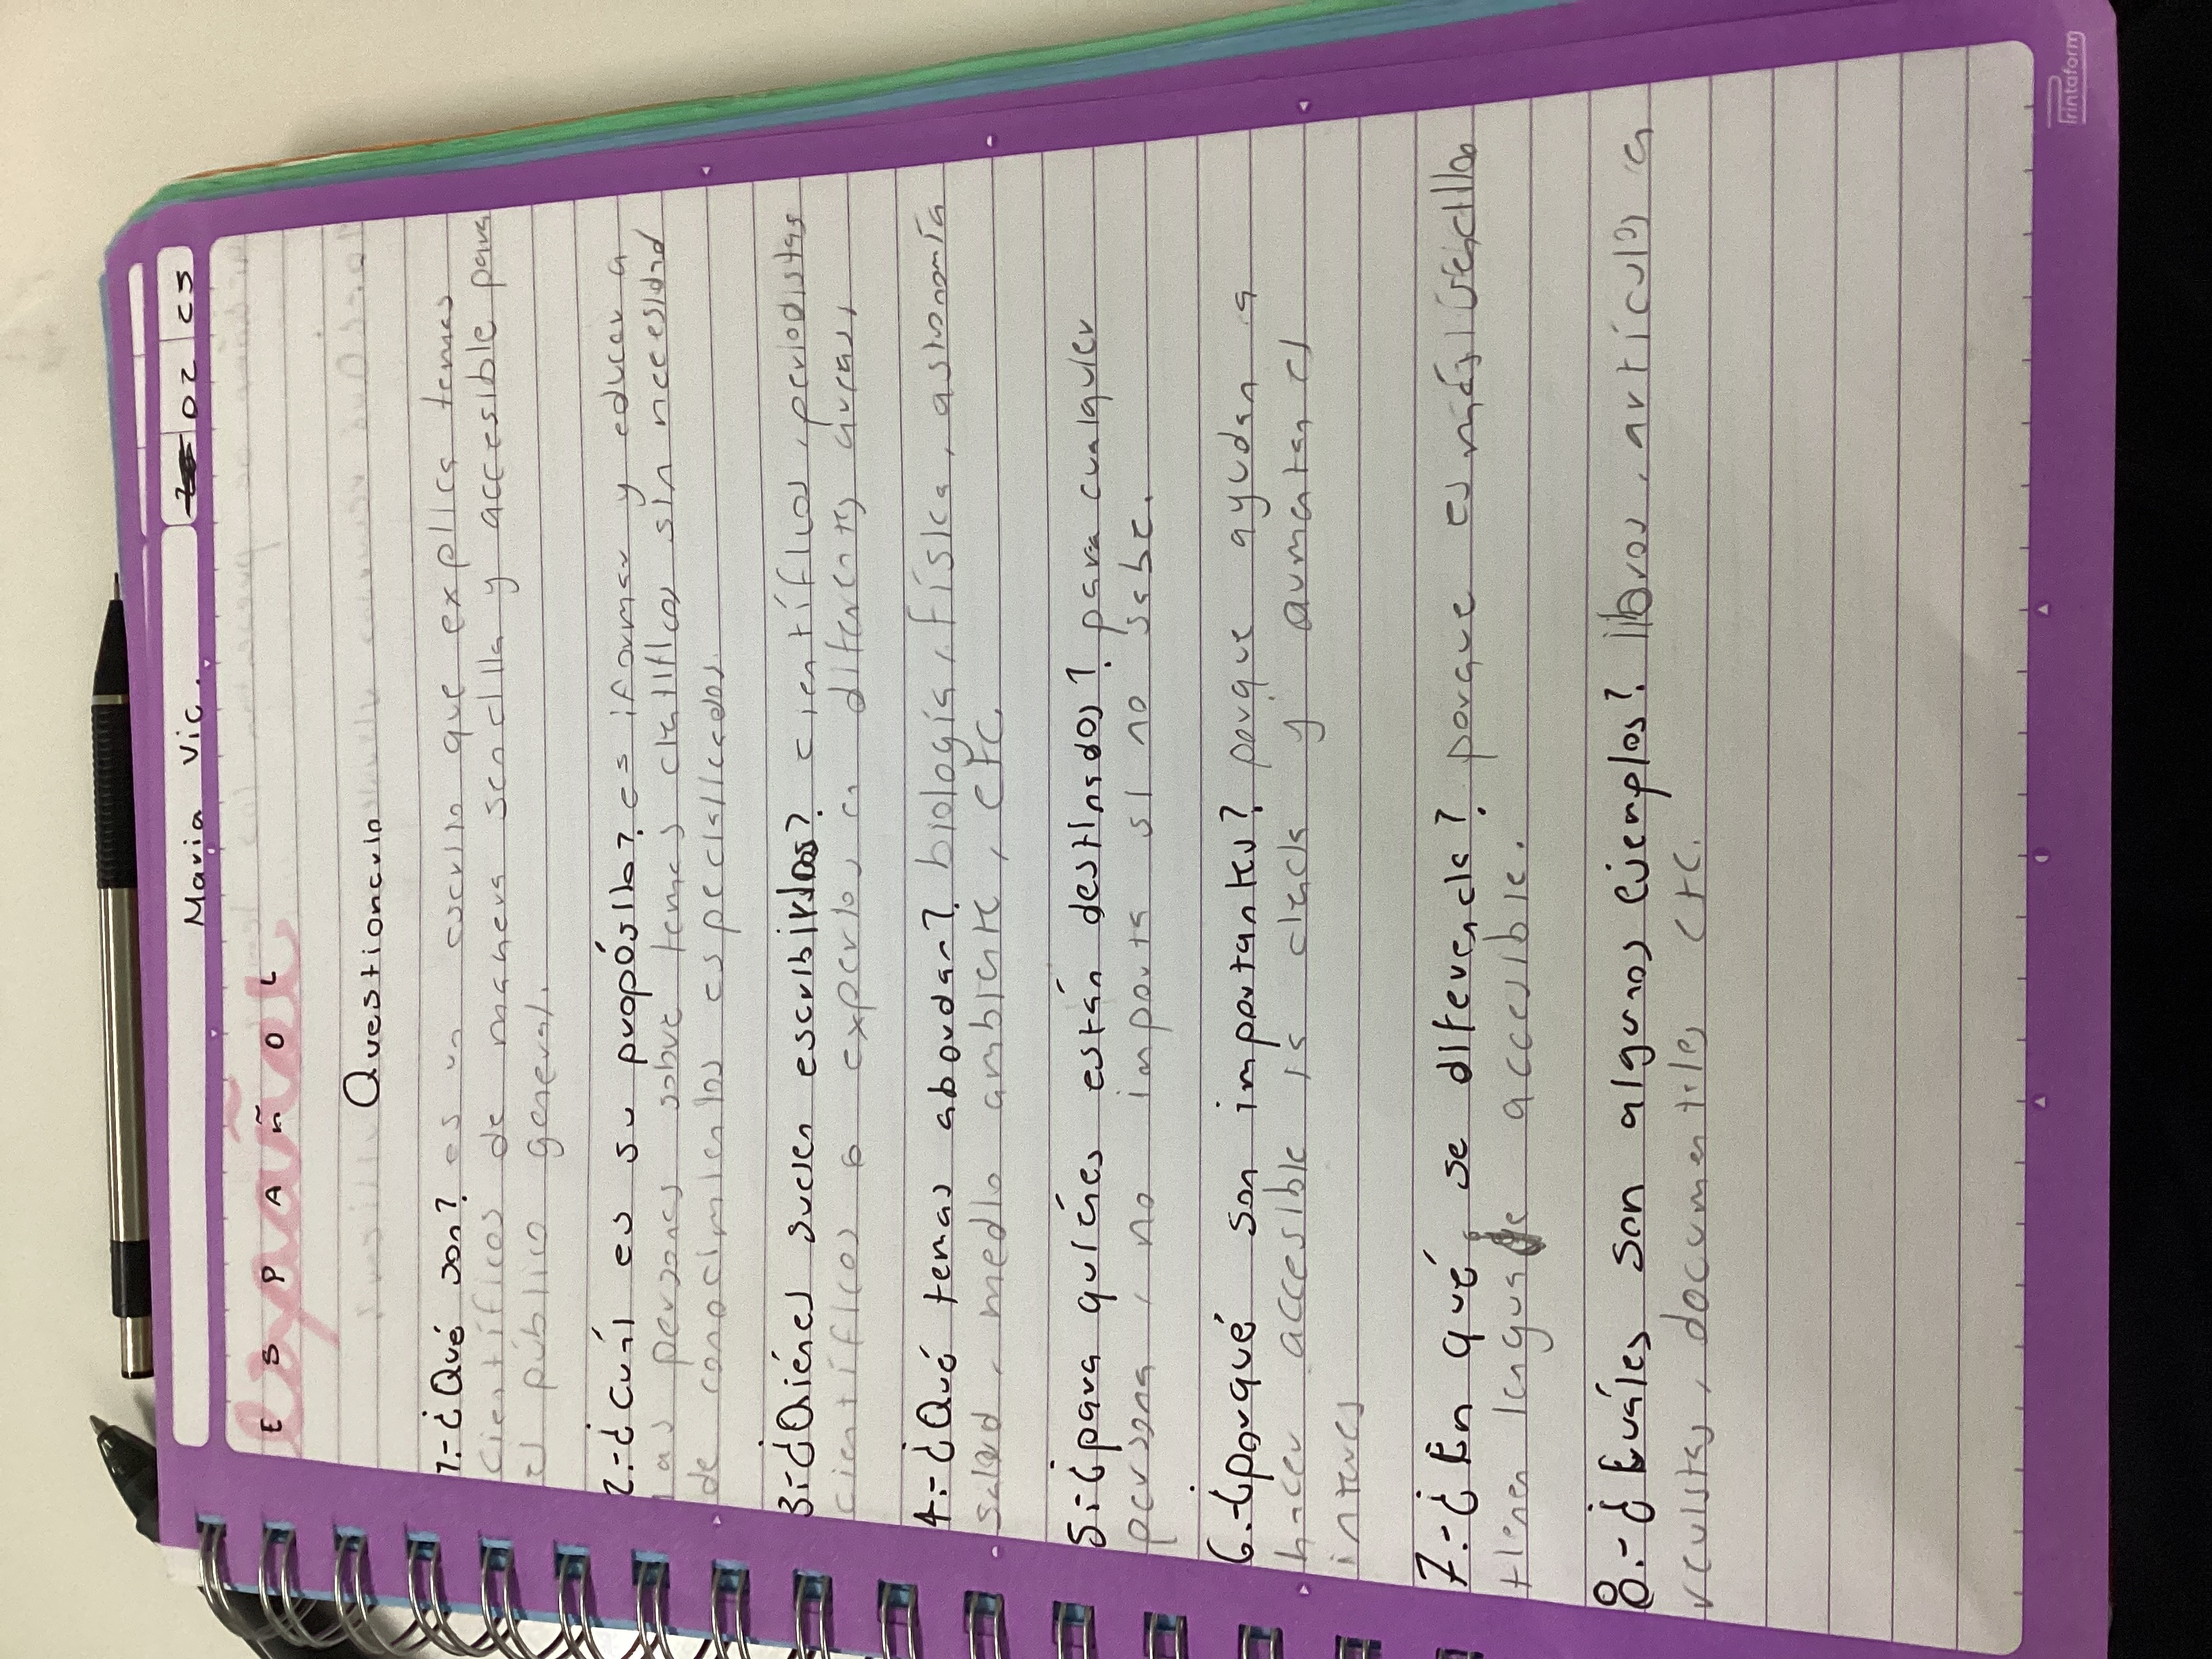 Maria Vic. 02 25
E S P A Ñ O L
Español
Questionario
1.-¿Qué son? es un escrito que explica temas
científicos de manera sencilla y accesible para
el público general.
2.-¿cuál es su propósito? es iformar y educar a
las personas sobre temas cietificos sin necesidad
de conocimientos especializados.
3.-¿Qiénes suelen escribirlos? científicos, periodistas
científicos o expertos en diferentes áreas,
4.-¿Qué temas abordan? biología, física, astronomía
salud, medio ambiente, etc.
5.-¿para quiénes están destinados? para cualquier
persona, no importa si no sabe.
6.-¿porqué son importantes? porque ayudan a
hacer accesible la ciencia y aumentan el
interes
7.-¿En qué se diferencia? porque es más sencillo
tienen lenguaje accesible.
8.-¿Cuáles son algunos ejemplos? libros, artículos en
revistas, documentiles etc.
Printaform